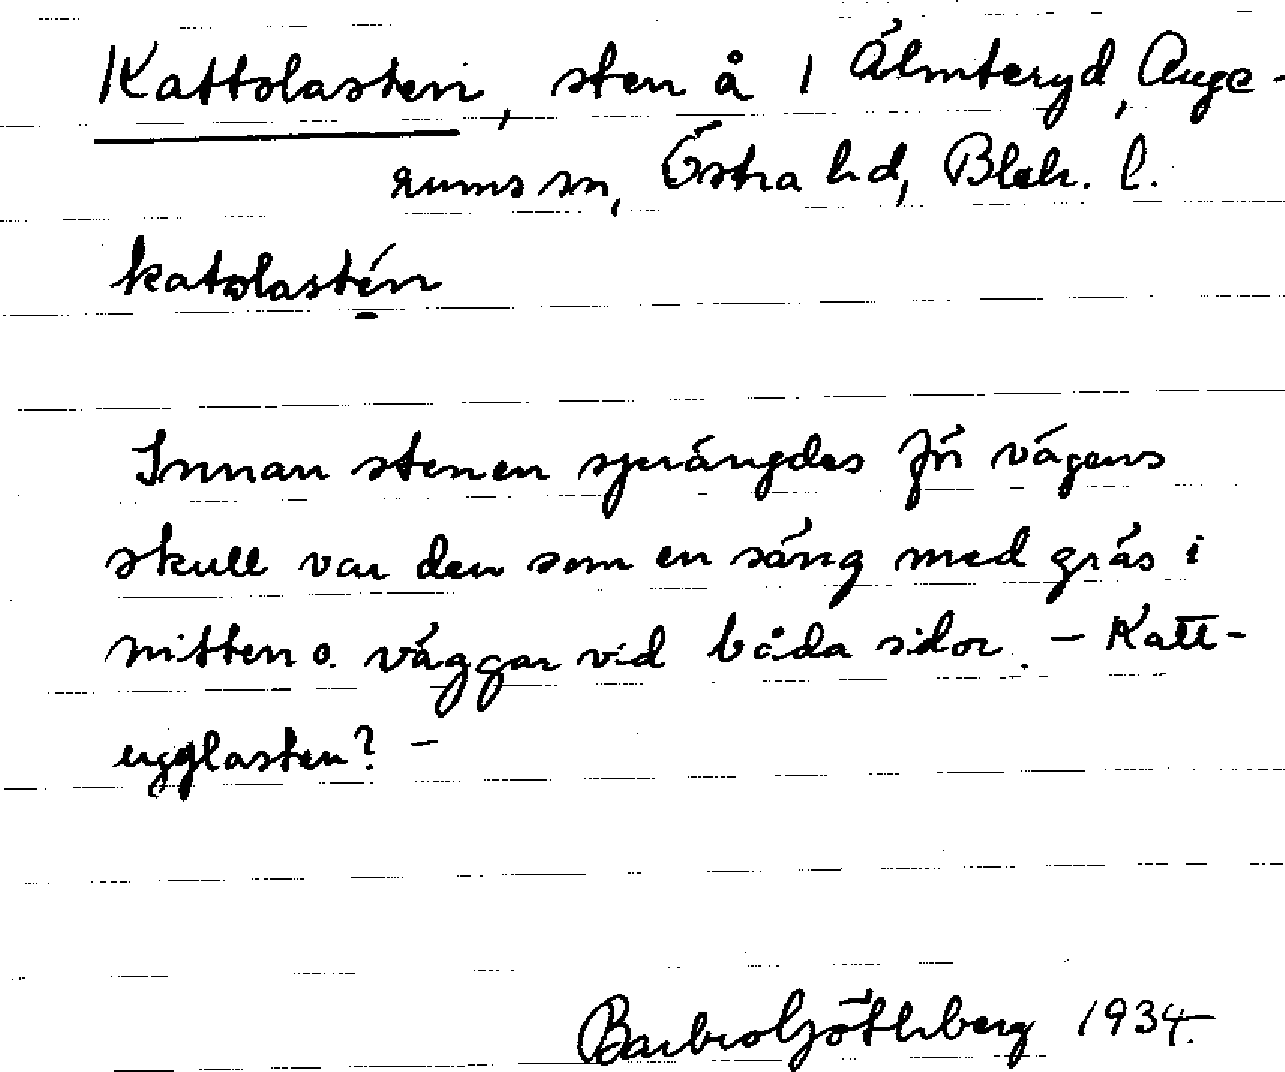 Kattolasten, sten å 1 Älmteryd, Auge-
rums sn, Östra hd, Blek. l.
katolastén
Innan stenen sprängdes för vägens
skull var den som en säng med gräs i
mitten o. väggar vid båda sidor. – Katt-
ugglasten? –
Barbro Göthberg 1934.